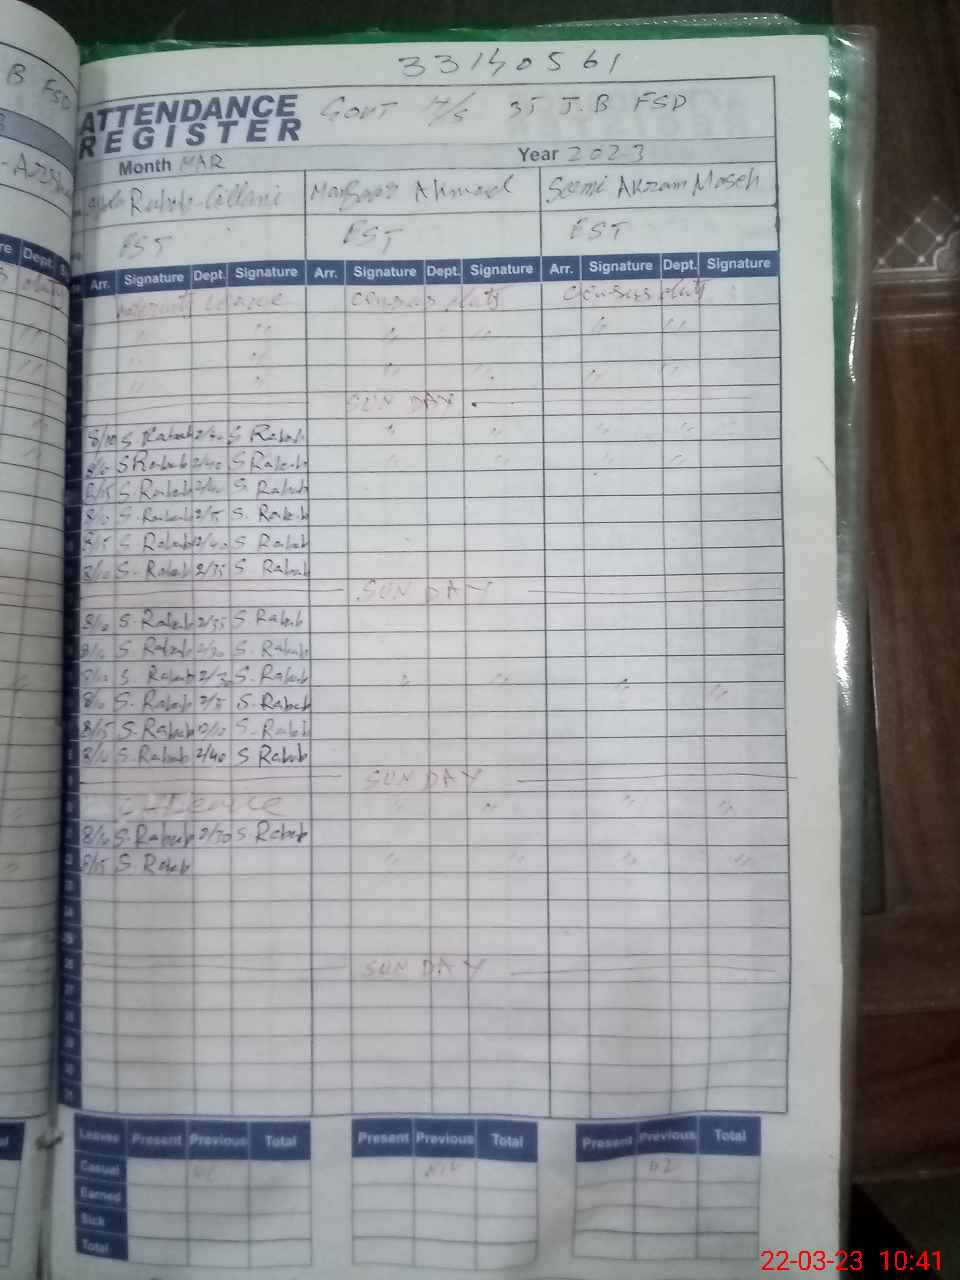 33140561
B FSD
ATTENDANCE REGISTER
GOVT H/S 35 J.B FSD
Month MAR Year 2023
Rabab Gillani Ahmad Seemi Akram Maseh
EST EST EST
Dept.
Arr. Signature Dept. Signature Arr. Signature Dept. Signature Arr. Signature Dept. Signature
leave census duty census duty
" " " " " "
" " " "
" " " " "
SUN DAY
8/10 S. Rabab 2/40 S Rabab " " " "
S Rabab 2/40 S Rabab " " " "
8/15 S. Rabab 2/40 S. Rabab
8/10 S. Rabab 2/5 S. Rabab
8/15 S. Rabab 2/40 S Rabab
8/10 S. Rabab 2/35 S. Rabab
SUN DAY
8/10 S. Rabab 2/35 S Rabab
8/10 S. Rabab 2/30 S. Rabab
S Rabab S. Rabab " " " "
8/10 S. Rabab S. Rabab
8/15 S. Rabab 12/10 S. Rabab
8/10 S. Rabab 2/40 S Rabab
SUN DAY
" " " "
8/10 S. Rabab 2/30 S Rabab
8/15 S. Rabab " " " "
23
24
25
26 SUN DAY
27
28
29
30
31
Leaves Present Previous Total Present Previous Total Present Previous Total
Casual
Earned
Sick
Total
22-03-23 10:41